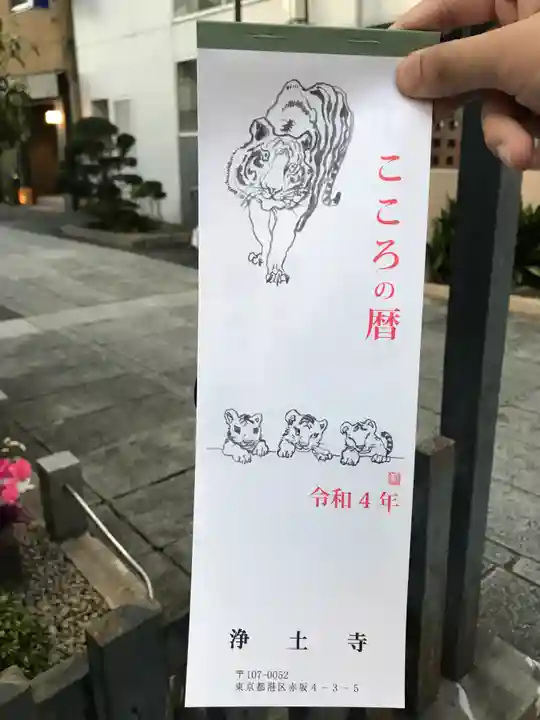 こころの暦
令和4年
浄土寺
〒107-0052
東京都港区赤坂4-3-5